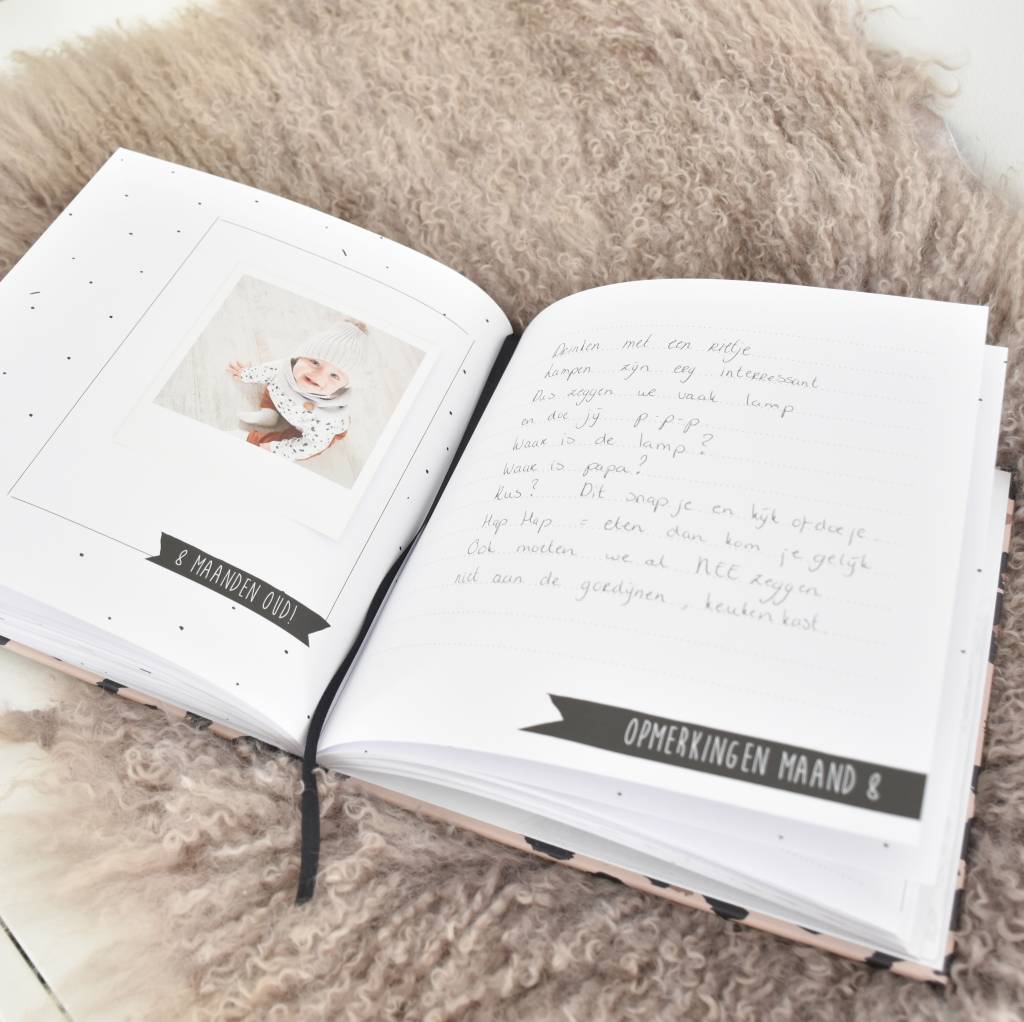 8 MAANDEN OUD!
Drinken met een rietje
Lampen zijn erg interressant
Dus zeggen we vaak lamp
en doe jij p-p-p
Waar is de lamp?
Waar is papa?
Kus? Dit snap je en kijk of doe je
Hap Hap = eten dan kom je gelijk
Ook moeten we al NEE zeggen
niet aan de gordijnen, keukenkast
OPMERKINGEN MAAND 8